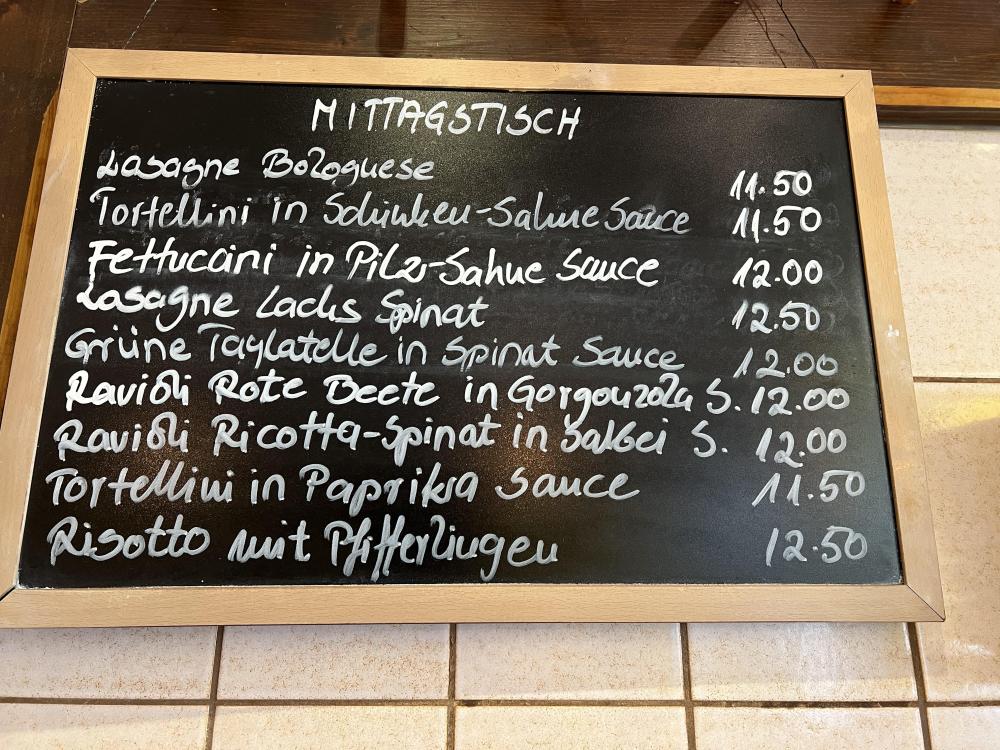 MITTAGSTISCH
Lasagne Bolognese 11.50
Tortellini in Schinken-Sahne Sauce 11.50
Fettuccini in Pilz-Sahne Sauce 12.00
Lasagne Lachs Spinat 12.50
Grüne Taglatelle in Spinat Sauce 12.00
Ravioli Rote Beete in Gorgonzola S. 12.00
Ravioli Ricotta-Spinat in Salbei S. 12.00
Tortellini in Paprika Sauce 11.50
Risotto mit Pfifferlingen 12.50